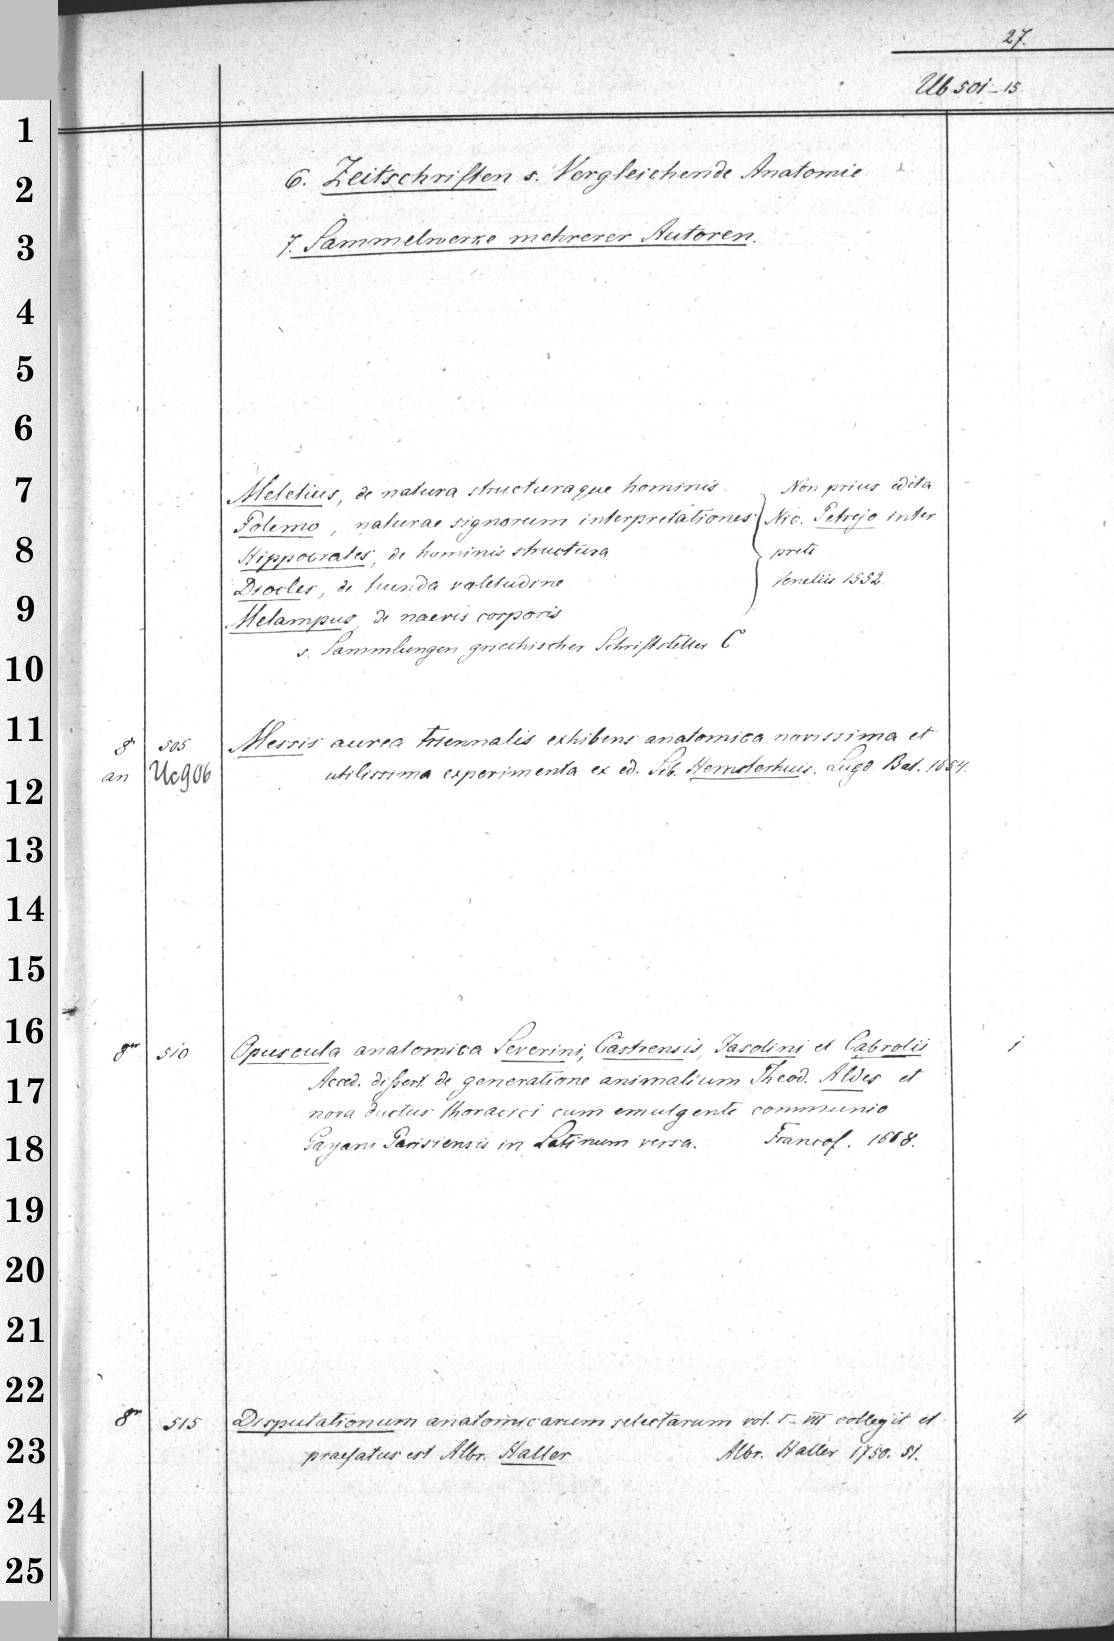 27.
Ub 501-15
1
6. Zeitschriften s. Vergleichende Anatomie
2
7. Sammelwerke mehrerer Autoren.
3
4
5
6
7
Meletius, de natura structuraque hominis. Non prius edita
Polemo, naturae signorum interpretationes Nic. Petrejo inter
8
Hippocrates, de hominis structura prete
Diocles, de tuenda valetudine Venetiis 1552.
9
Melampus, de naevis corporis
s. Sammlungen griechischer Schriftsteller C
10
11
8 505 Messis aurea triennalis exhibens anatomica novissima et
an Uc906 utilissima experimenta ex ed. Sib. Hemsterhuis. Lugd. Bat. 1654.
12
13
14
15
16
8vr 510 Opuscula anatomica Severini, Castrensis, Jasolini et Cabrolii 1
Acced. dissert. de generatione animalium Theod. Aldes et
17
nova ductus thoracici cum emulgente communio
Gayani Parisiensis in Latinum versa. Francof. 1668.
18
19
20
21
22
8vr 515 Disputationum anatomicarum selectarum vol. I-VIII collegit et 4
23
praefatus est Albr. Haller Albr. Haller 1750. 51.
24
25